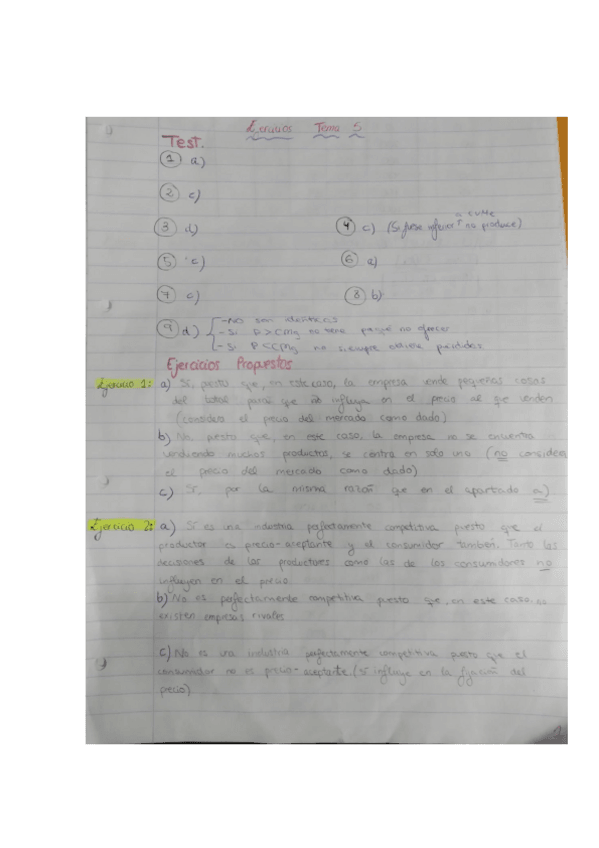 Ejercicios Tema 5
Test.
1 a)
2 c)
3 d)
4 c) (Si fuese inferior a CVMe no produce)
5 c)
6 a)
7 c)
8 b)
9 d) - No son idénticas
- Si P > CMg no tiene no ofrecer
- Si P < CMg no siempre obtiene pérdidas
Ejercicios Propuestos
Ejercicio 1: a) Sí, puesto que, en este caso, la empresa vende pequeñas cosas
del total para que no influya en el precio al que venden
(considera el precio del mercado como dado)
b) No, puesto que, en este caso, la empresa no se encuentra
vendiendo muchos productos, se centra en solo uno (no considera
el precio del mercado como dado)
c) Sí, por la misma razón que en el apartado a)
Ejercicio 2: a) Sí es una industria perfectamente competitiva puesto que el
productor es precio-aceptante y el consumidor también. Tanto las
decisiones de los productores como las de los consumidores no
influyen en el precio
b) No es perfectamente competitiva puesto que, en este caso, no
existen empresas rivales
c) No es una industria perfectamente competitiva puesto que el
consumidor no es precio-aceptante. (Sí influye en la fijación del
precio)